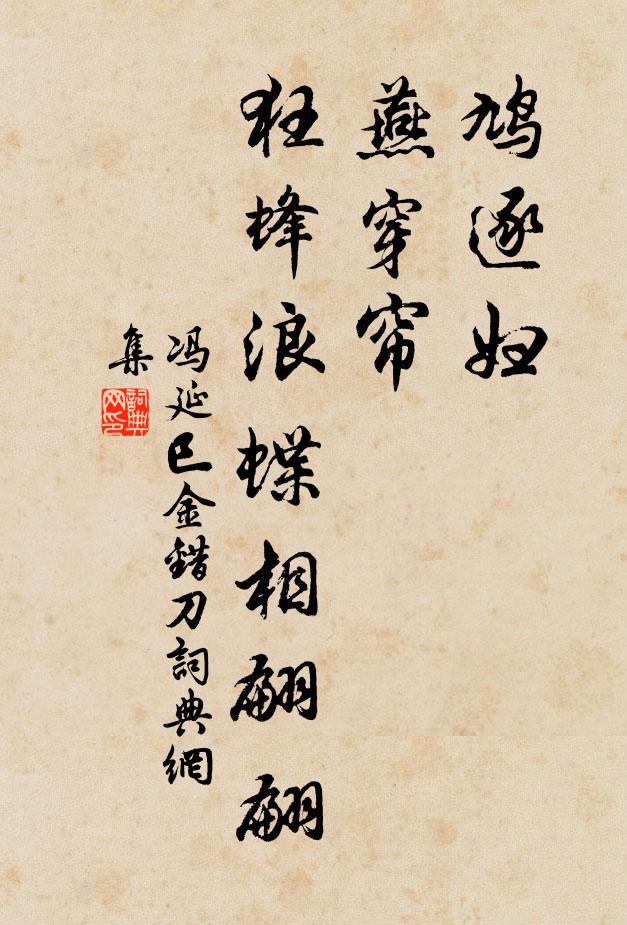 鸠逐妇
燕穿帘
狂蜂浪蝶相翩翩
冯延巳金錯刀詞典網
集
詞典
网印